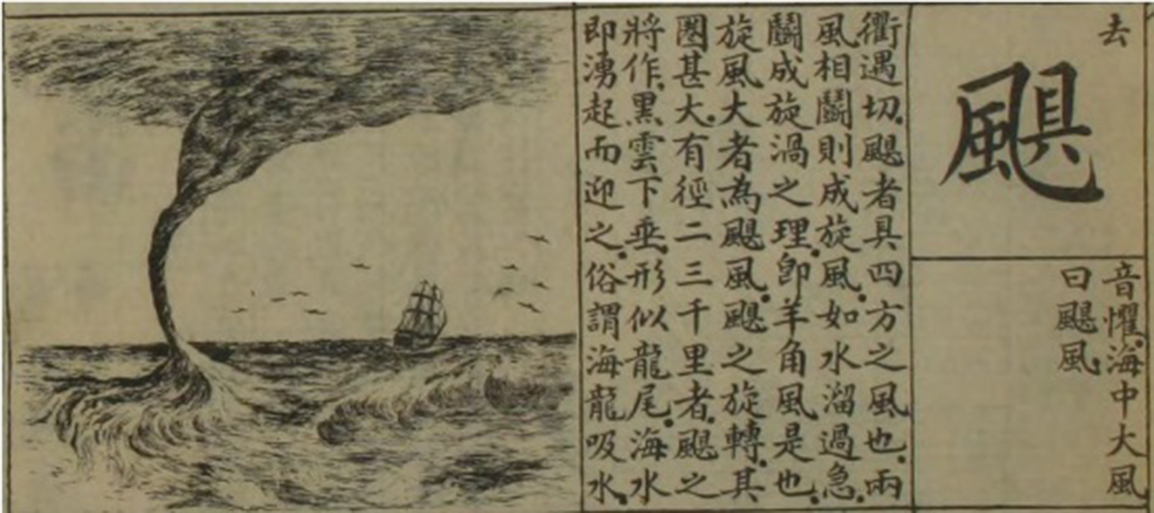 去
颶
音懼、海中大風
曰颶風、
衢遇切、颶者具四方之風也、兩
風相鬭則成旋風、如水溜過急、
鬭成旋渦之理、即羊角風是也、
旋風大者為颶風、颶之旋轉、其
圈甚大、有徑二三千里者、颶之
將作、黑雲下垂、形似龍尾、海水
即湧起而迎之、俗謂海龍吸水、